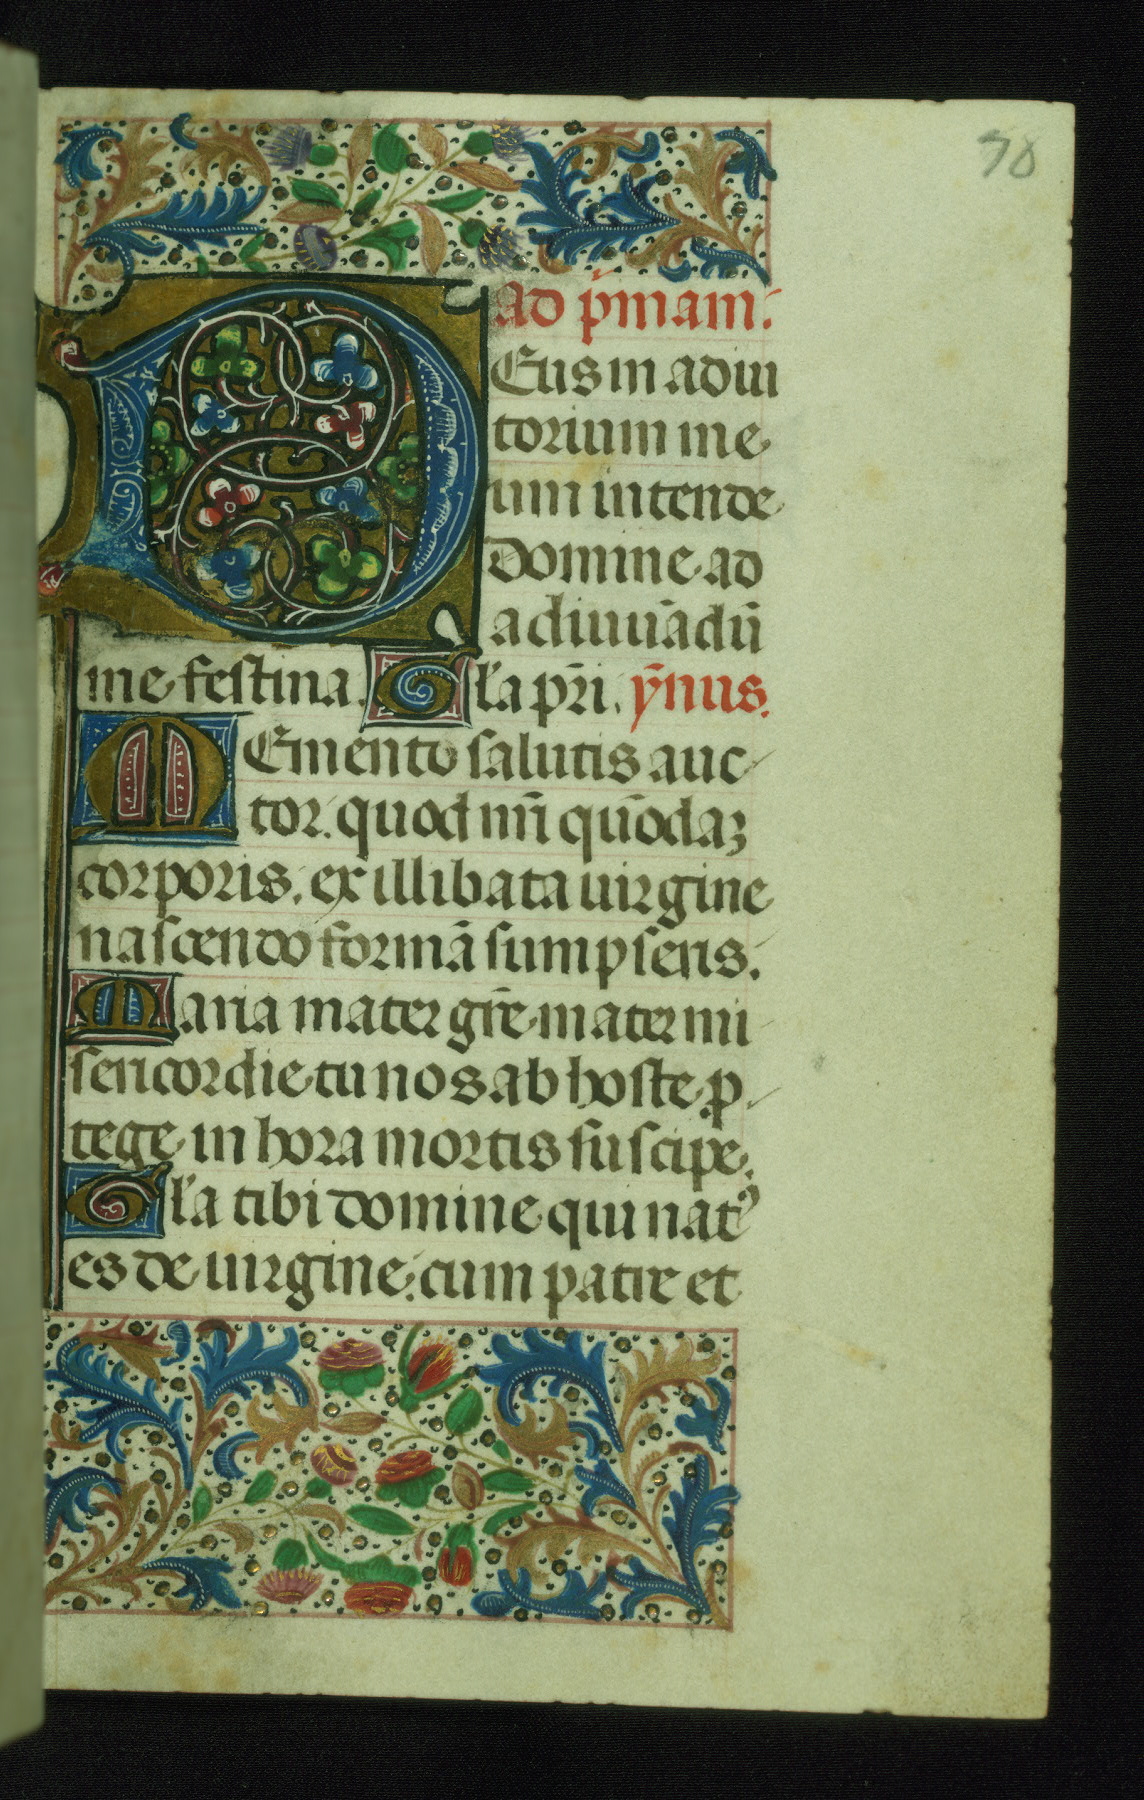 78
ad p̄mam.
DEus in adiu
torium me
um intende
Domine ad
adiuuādū
me festina. Gl'a pr̄i. ȳnus.
MEmento salutis auc
tor. quod nr̄i quōdaꝫ
corporis. ex illibata uirgine
nascendo formā sumpseris.
Maria mater gr̄e mater mi
sericordie tu nos ab hoste p
tege in hora mortis suscipe.
Gl'a tibi domine qui natꝰ
es de uirgine. cum patre et